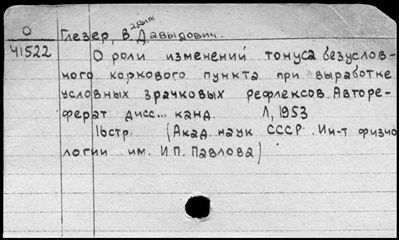 О
Глезер В. Давыдович.
Ч1522
О роли изменений тонуса безуслов-
ного коркового пункта при выработке
условных зрачковых рефлексов. Авторе-
ферат дисс... канд. Л, 1953
16стр. (Акад. наук СССР. Ин-т физио-
логии им. И.П. Павлова)